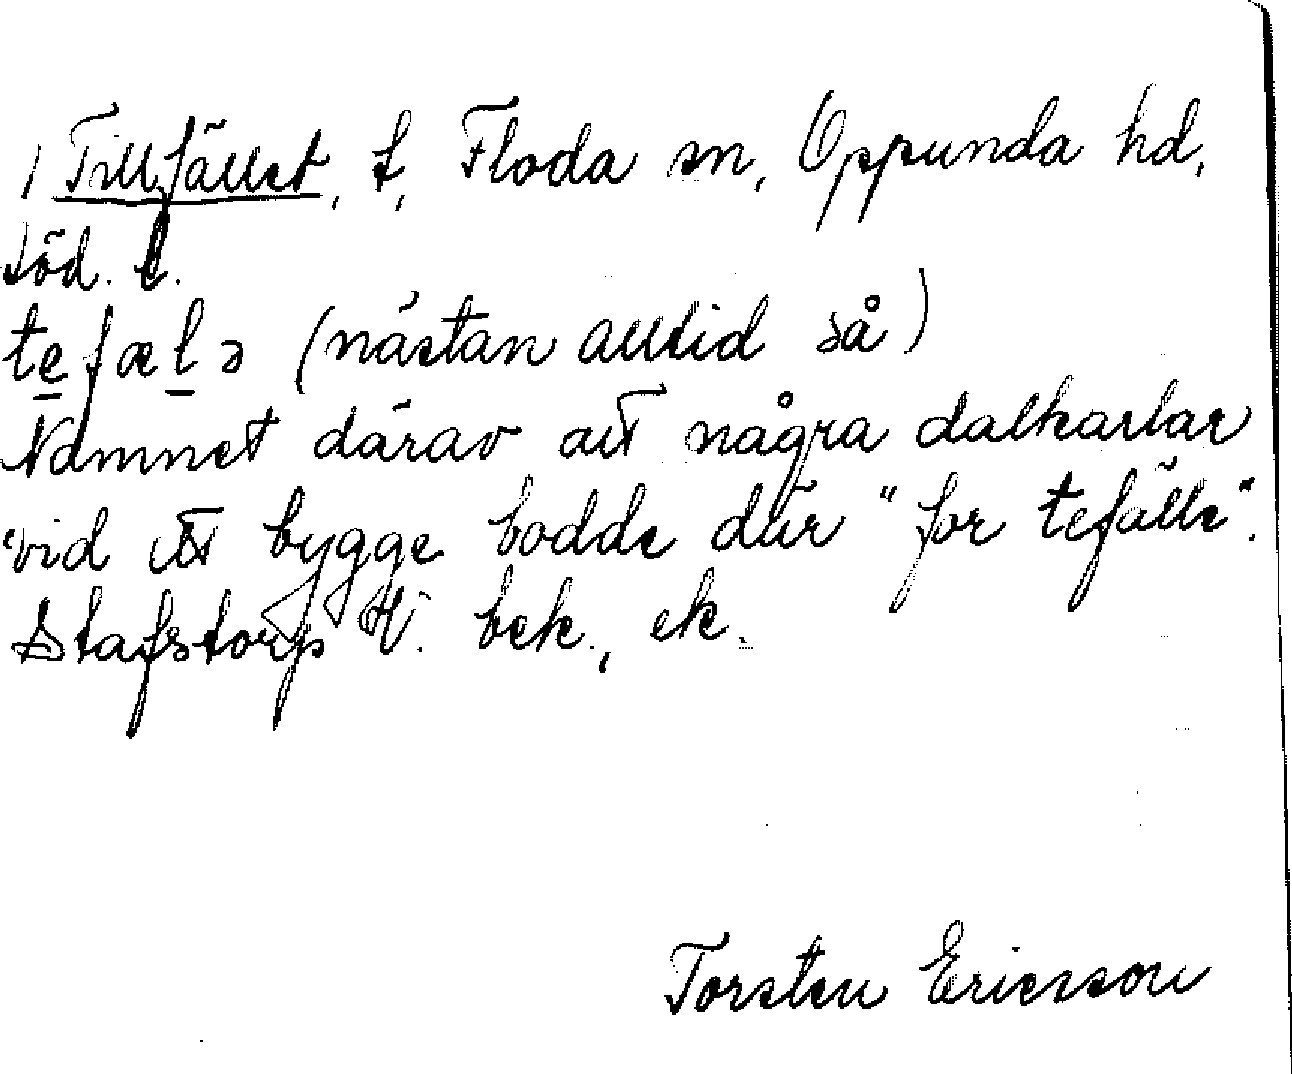 Tillfället, t, Floda sn, Oppunda hd,
Söd. l.
tefælə (nästan alltid så)
Namnet därav att några dalkarlar
vid ett bygge bodde där "for tefälle".
Stafstorp V. bek., ek.
Torsten Ericsson